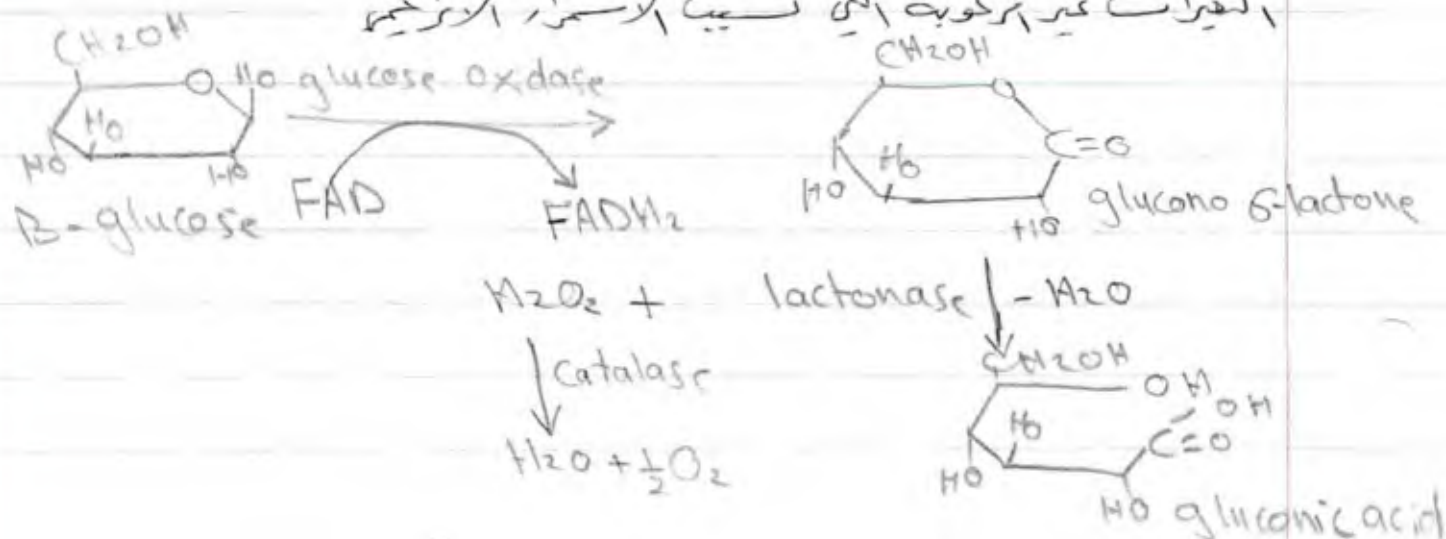 التغيرات غير المرغوبة التي تسبب الاسمرار الانزيمي
CH2OH
O HO glucose oxdase
HO
HO
HO
B-glucose
FAD
FADH2
CH2OH
O
C=O
HO
HO
HO
glucono δ-lactone
H2O2 +
lactonase -H2O
catalase
H2O + 1/2 O2
CH2OH
OH
OH
HO
C=O
HO
HO
gluconic acid